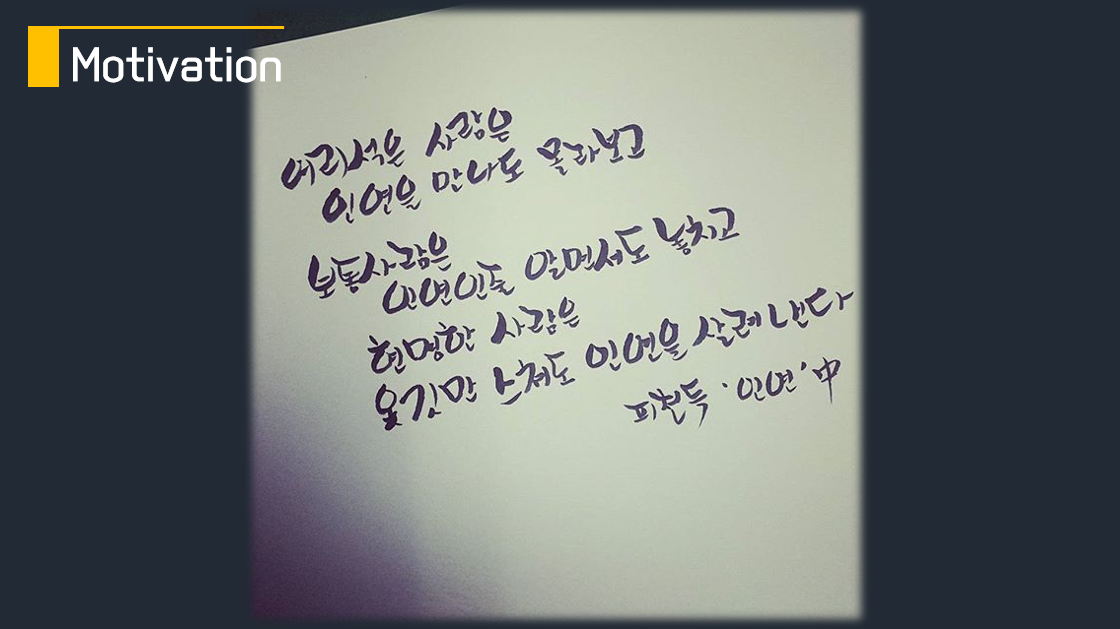 Motivation
어리석은 사람은
인연을 만나도 몰라보고
보통사람은
인연인줄 알면서도 놓치고
현명한 사람은
옷깃만 스쳐도 인연을 살려낸다
피천득 '인연' 中